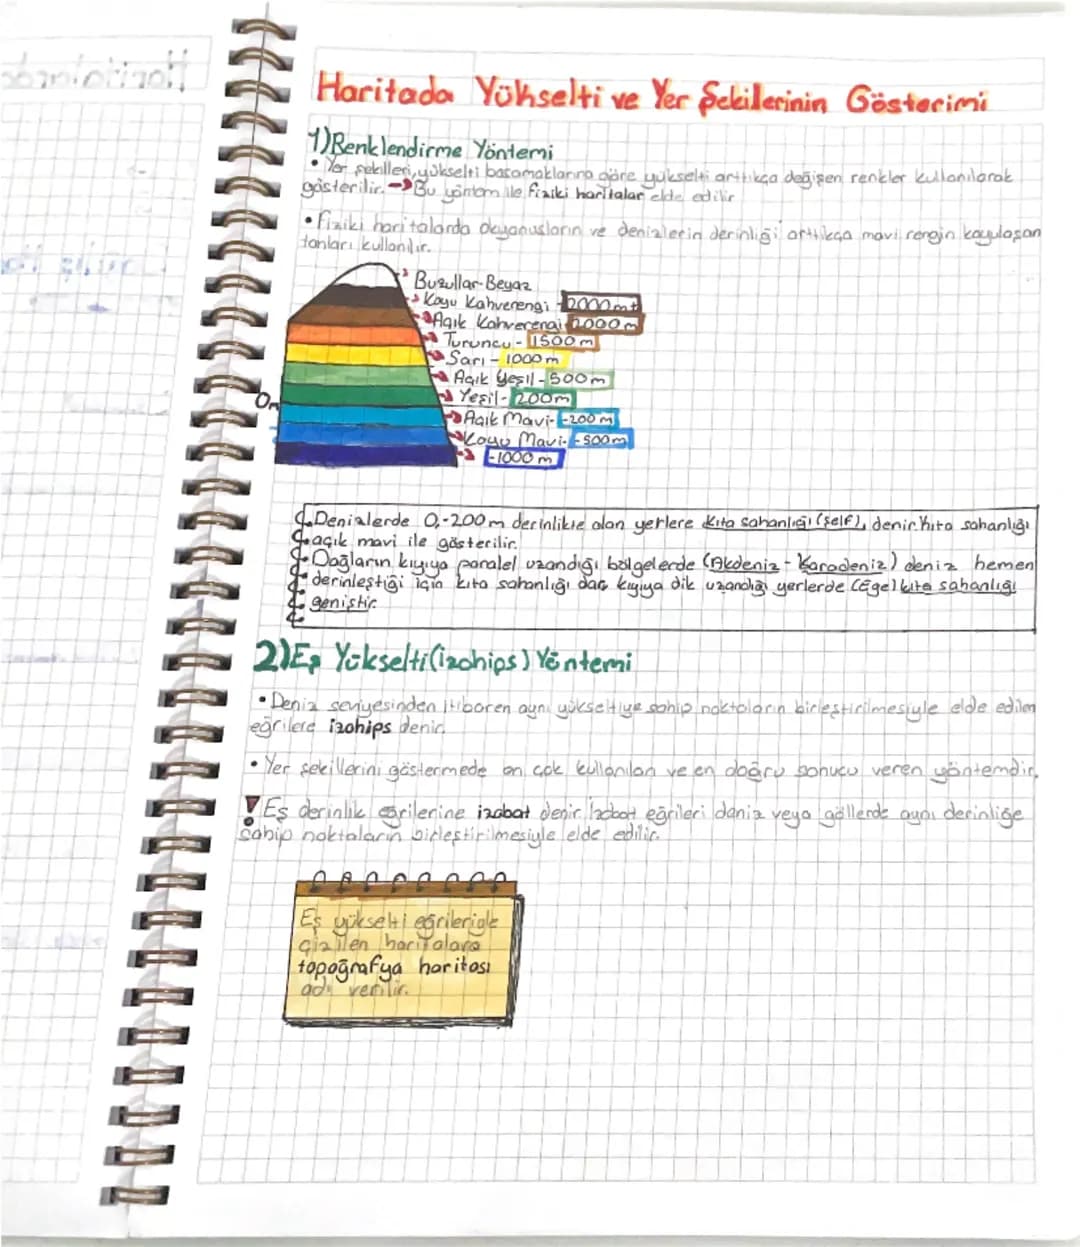 Haritada Yükselti ve Yer Şekillerinin Gösterimi
1)Renklendirme Yöntemi
• Yer şekilleri, yükselti basamaklarına göre yükselti arttıkça değişen renkler kullanılarak
gösterilir. → Bu yöntem ile fiziki haritalar elde edilir
• Fiziki haritalarda okyanusların ve denizlerin derinliği arttıkça mavi rengin koyulaşan
tonları kullanılır.
Buzullar-Beyaz
Koyu Kahverengi - 2000mt
Açık Kahverengi 2000m
Turuncu - 1500m
Sarı - 1000m
Açık Yeşil - 500m
Yeşil - 200m
0m
Açık Mavi - -200 m
Koyu Mavi - -500m
-1000 m
Denizlerde 0,-200m derinlikte olan yerlere kıta sahanlığı (şelf), denir. Kıta sahanlığı
açık mavi ile gösterilir.
Dağların kıyıya paralel uzandığı bölgelerde (Akdeniz - Karadeniz) deniz hemen
derinleştiği için kıta sahanlığı dar, kıyıya dik uzandığı yerlerde (Ege) kıta sahanlığı
geniştir.
2)Eş Yükselti(izohips) Yöntemi
• Deniz seviyesinden itibaren aynı yükseltiye sahip noktaların birleştirilmesiyle elde edilen
eğrilere izohips denir.
• Yer şekillerini göstermede en çok kullanılan ve en doğru sonucu veren yöntemdir.
! Eş derinlik eğrilerine izobat denir. İzobat eğrileri deniz veya göllerde aynı derinliğe
sahip noktaların birleştirilmesiyle elde edilir.
Eş yükselti eğrileriyle
çizilen haritalara
topoğrafya haritası
adı verilir.